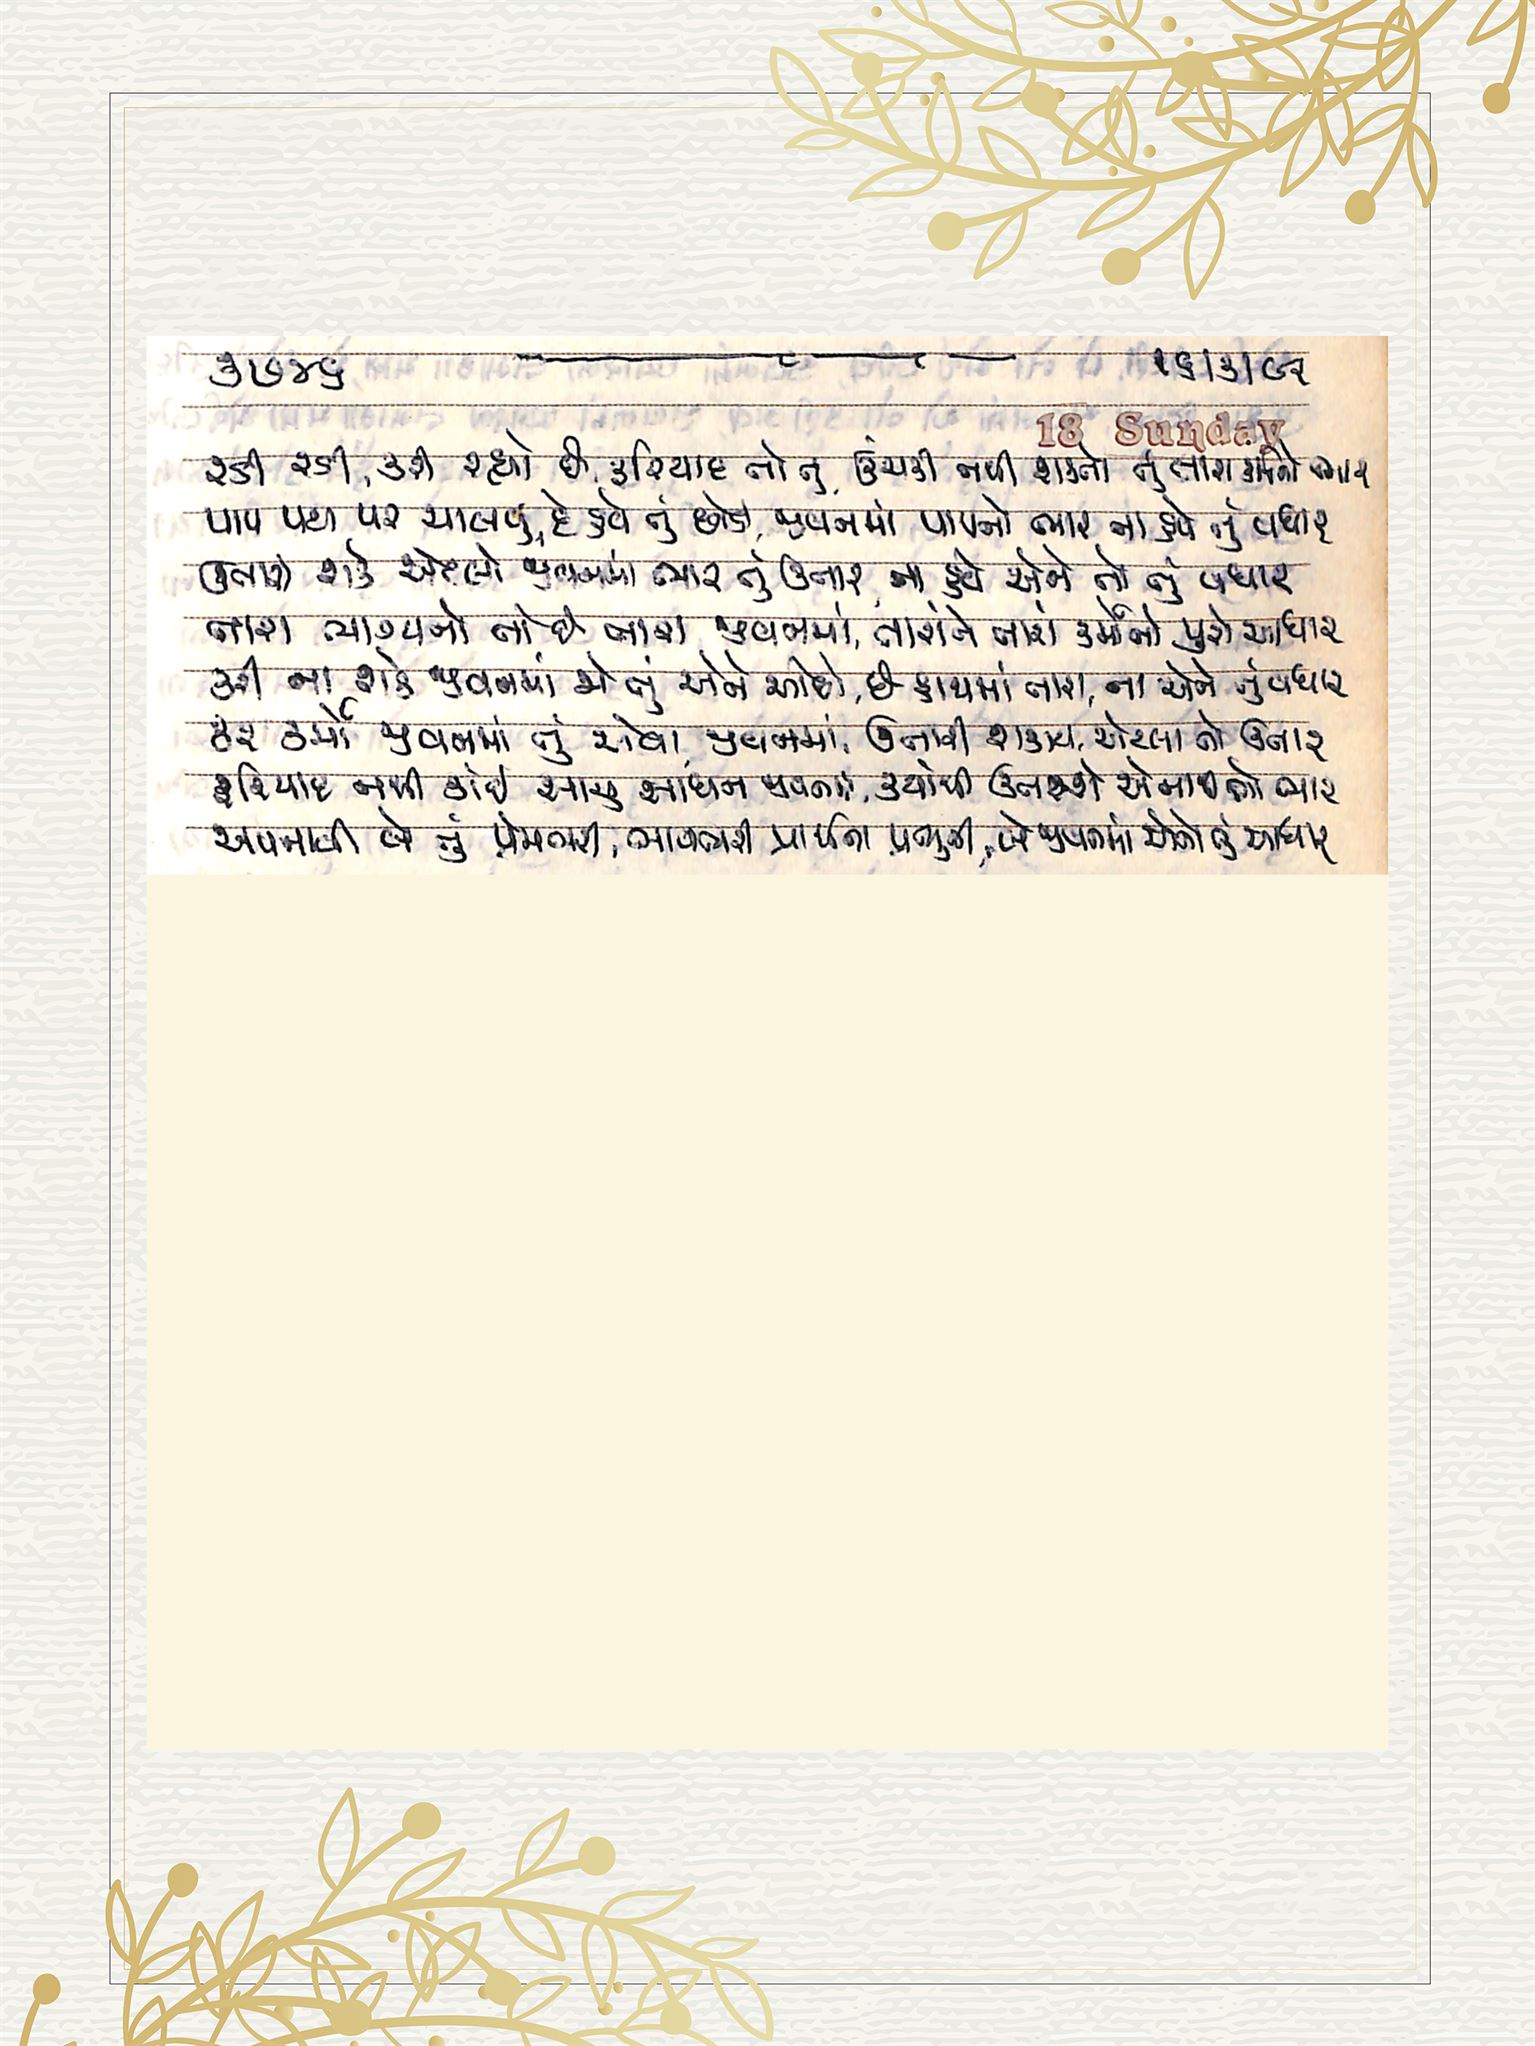 ૩૭૪૬ ૧૬/૩/૯૨
18 Sunday
રડી રડી, કરી રહ્યો છે, ફરિયાદ તો તું, ઊંચકી નથી શકતો તું તારા કર્મનો ભાર
પાપ પથ પર ચાલવું, દે હવે તું છોડી, જીવનમાં પાપનો ભાર ના હવે તું વધાર
ઉતારી શકે એટલો જીવનમાં ભાર તું ઉતાર, ના હવે એને તો તું વધાર
તારા ભાગ્યનો તો છે તારા જીવનમાં, તારાને તારાં કર્મોનો પુરો આધાર
કરી ના શકે જીવનમાં જો તું એને ઓછો, છે હાથમાં તારા, ના એને તું વધાર
કર કર્મો જીવનમાં તું એવા જીવનમાં, ઉતારી શકાય, એટલા તો ઉતાર
ફરિયાદ નથી કોઈ સાચુ સાધન જીવનમાં, ક્યાંથી ઉતરશે એનાથી તો ભાર
અપનાવી લે તું પ્રેમભરી, ભાવભરી પ્રાર્થના પ્રભુની, લે જીવનમાં એનો તું આધાર